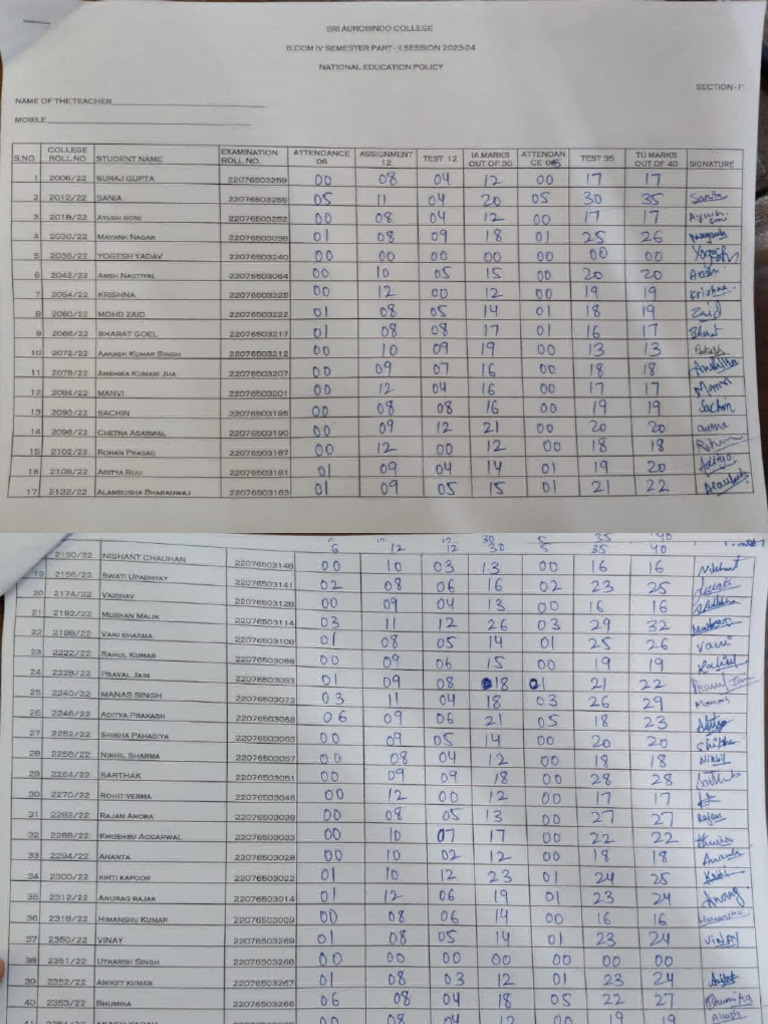 SRI AUROBINDO COLLEGE
B.COM IV SEMESTER PART - II SESSION 2023-24
NATIONAL EDUCATION POLICY
SECTION -
NAME OF THE TEACHER
MOBILE
S.NO. COLLEGE ROLL NO STUDENT NAME EXAMINATION ROLL NO. ATTENDANCE 06 ASSIGNMENT 12 TEST 12 IA MARKS OUT OF 30 ATTENDAN CE 05 TEST 35 TU MARKS OUT OF 40 SIGNATURE
1 2006/22 SURAJ GUPTA 22076503259 00 08 04 12 00 17 17
2 2012/22 SANIA 22076503255 05 11 04 20 05 30 35 Sania
3 2018/22 AYUSH SONI 22076503252 00 08 04 12 00 17 17 Ayush
4 2030/22 MAYANK NAGAR 22076503098 01 08 09 18 01 25 26
5 2036/22 YOGESH YADAV 22076503240 00 00 00 00 00 00 00 Yogesh
6 2042/22 ANSH NAUTIYAL 22076503064 00 10 05 15 00 20 20 Ansh
7 2054/22 KRISHNA 22076503225 00 12 00 12 00 19 19 Krishna
8 2060/22 MOHD ZAID 22076503222 01 08 05 14 01 18 19 Zaid
9 2066/22 BHARAT GOEL 22076503217 01 08 08 17 01 16 17 Bharat
10 2072/22 AAKASH KUMAR SINGH 22076503212 00 10 09 19 00 13 13
11 2078/22 ANSHIKA KUMARI JHA 22076503207 00 09 07 16 00 18 18 Anshika
12 2084/22 MANVI 22076503201 00 12 04 16 00 17 17 Manvi
13 2090/22 SACHIN 22076503195 00 08 08 16 00 19 19 Sachin
14 2096/22 CHETNA AGARWAL 22076503190 00 09 12 21 00 20 20
15 2102/22 ROHAN PRASAD 22076503187 00 12 00 12 00 18 18 Rohan
16 2108/22 ADITYA BIJU 22076503181 01 09 04 14 01 19 20 Aditya
17 2132/22 ALAMBUSHA BHARADWAJ 22076503163 01 09 05 15 01 21 22
6 12 12 30 5 35 40
2150/22 NISHANT CHAUHAN 22076503148 00 10 03 13 00 16 16 Nishant
19 2156/22 SWATI UPADHYAY 22076503141 02 08 06 16 02 23 25 Swati
20 2174/22 VAIBHAV 22076503128 00 09 04 13 00 16 16
21 2192/22 MUSKAN MALIK 22076503114 03 11 12 26 03 29 32
22 2198/22 VANI SHARMA 22076503108 01 08 05 14 01 25 26 Vani
23 2222/22 RAHUL KUMAR 22076503088 00 09 06 15 00 19 19
24 2228/22 PRAVAL JAIN 22076503083 01 09 08 18 01 21 22 Praval Jain
25 2240/22 MANAS SINGH 22076503073 03 11 04 18 03 26 29 Manas
26 2246/22 ADITYA PRAKASH 22076503068 06 09 06 21 05 18 23 Aditya
27 2252/22 SHIKHA PAHADIYA 22076503063 00 09 05 14 00 20 20 Shikha
28 2258/22 NIKHIL SHARMA 22076503057 00 08 04 12 00 18 18 Nikhil
29 2264/22 SARTHAK 22076503051 00 09 09 18 00 28 28 Sarthak
30 2270/22 ROHIT VERMA 22076503046 00 12 00 12 00 17 17
31 2282/22 RAJAN ARORA 22076503038 00 08 05 13 00 27 27 Rajan
32 2288/22 KHUSHBU AGGARWAL 22076503033 00 10 07 17 00 22 22
33 2294/22 ANANTA 22076503028 00 10 02 12 00 18 18 Ananta
34 2300/22 KRITI KAPOOR 22076503022 01 10 12 23 01 24 25 Kriti
35 2312/22 ANURAG RAJAK 22076503014 01 12 06 19 01 23 24 Anurag
36 2318/22 HIMANSHU KUMAR 22076503009 00 08 06 14 00 16 16 Himanshu
37 2350/22 VINAY 22076503269 01 08 05 14 01 23 24 Vinay
38 2351/22 UTKARSH SINGH 22076503268 00 00 00 00 00 00 00
39 2352/22 ANIKET KUMAR 22076503267 01 08 03 12 01 23 24
40 2353/22 BHUMIKA 22076503266 06 08 04 18 05 22 27 Bhumika